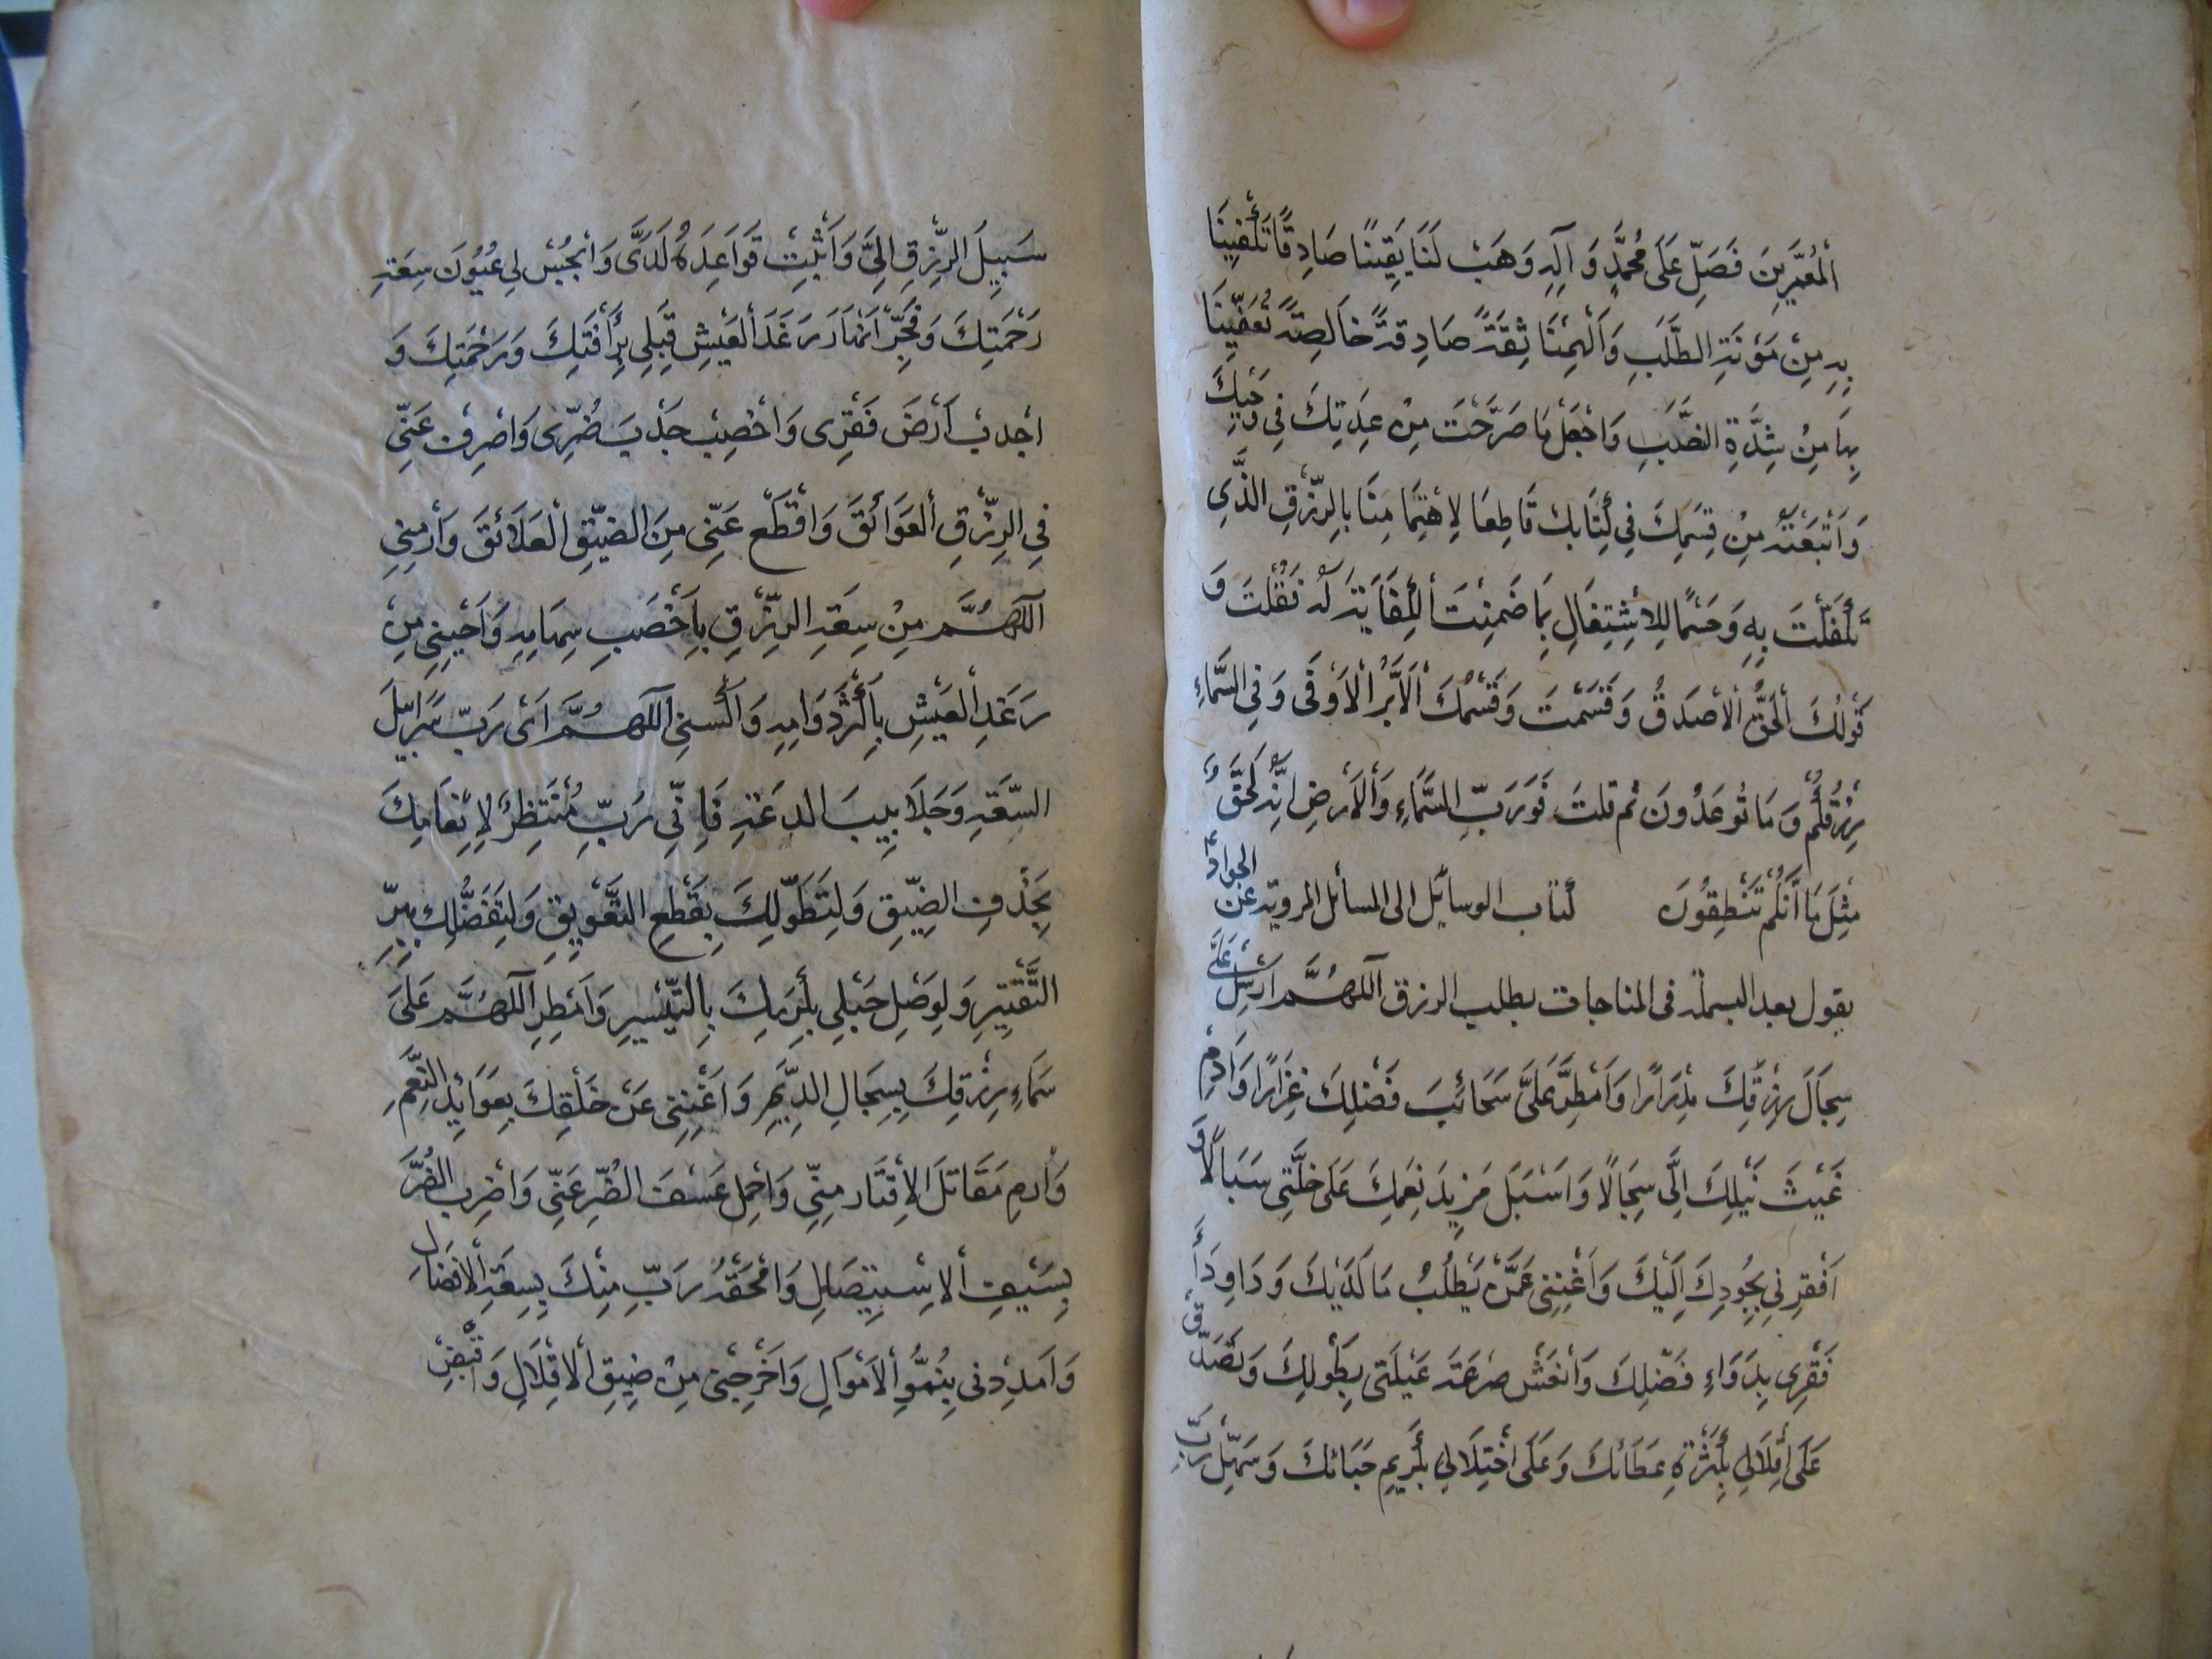 الْمُعَمَّرِينَ فَصَلِّ عَلَى مُحَمَّدٍ وَآلِهِ وَهَبْ لَنَا يَقِينًا صَادِقًا تَكْفِينَا
بِهِ مِنْ مَؤُنَةِ الطَّلَبِ وَأَلْهِمْنَا ثِقَةً صَادِقَةً خَالِصَةً تُعْفِينَا
بِهَا مِنْ شِدَّةِ النَّصَبِ وَاجْعَلْ مَا صَرَّحْتَ مِنْ عِدَتِكَ فِي وَحْيِكَ
وَأَتْبَعْتَهُ مِنْ قِسَمِكَ فِي كِتَابِكَ قَاطِعًا لِاهْتِمَامِنَا بِالرِّزْقِ الَّذِي
تَكَفَّلْتَ بِهِ وَحَسْمًا لِلِاشْتِغَالِ بِمَا ضَمِنْتَ الْكِفَايَةَ لَهُ فَقُلْتَ وَ
قَوْلُكَ الْحَقُّ الْأَصْدَقُ وَقَسَمْتَ وَقَسَمُكَ الْأَبَرُّ الْأَوْفَى وَفِي السَّمَاءِ
رِزْقُكُمْ وَمَا تُوعَدُونَ ثم قلتَ فَوَرَبِّ السَّمَاءِ وَالْأَرْضِ إِنَّهُ لَحَقٌّ
مِثْلَ مَا أَنَّكُمْ تَنْطِقُونَ كتاب الوسائل الى المسائل المروية عن الجواد ع
يقول بعد البسملة فى المناجات بطلب الرزق اللَّهُمَّ أَرْسِلْ عَلَيَّ
سِجَالَ رِزْقِكَ مِدْرَارًا وَأَمْطِرْ عَلَيَّ سَحَائِبَ فَضْلِكَ غِزَارًا وَأَدِمْ
غَيْثَ نَيْلِكَ إِلَيَّ سِجَالًا وَاسْبِلْ مَزِيدَ نِعَمِكَ عَلَى خَلَّتِي سَبَالًا وَ
أَفْقِرْنِي بِجُودِكَ إِلَيْكَ وَأَغْنِنِي عَمَّنْ يَطْلُبُ مَا لَدَيْكَ وَدَاوِ دَاءَ
فَقْرِي بِدَوَاءِ فَضْلِكَ وَانْعَشْ صَرْعَةَ عَيْلَتِي بِطَوْلِكَ وَتَصَدَّقْ
عَلَى إِقْلَالِي بِكَثْرَةِ عَطَائِكَ وَعَلَى اخْتِلَالِي بِكَرِيمِ حَبَائِكَ وَسَهِّلْ رَبِّ
سَبِيلَ الرِّزْقِ إِلَيَّ وَأَثْبِتْ قَوَاعِدَهُ لَدَيَّ وَابْجُسْ لِي عُيُونَ سِعَةِ
رَحْمَتِكَ وَفَجِّرْ أَنْهَارَ رَغَدِ الْعَيْشِ قِبَلِي بِرَأْفَتِكَ وَرَحْمَتِكَ وَ
اجْدِبْ أَرْضَ فَقْرِى وَاخْصِبْ جَدْبَ ضُرِّى وَاصْرِفْ عَنِّى
فِي الرِّزْقِ الْعَوَائِقَ وَاقْطَعْ عَنِّى مِنَ الضِّيقِ الْعَلَائِقَ وَارْمِنِي
اللَّهُمَّ مِنْ سِعَةِ الرِّزْقِ بِأَخْصَبِ سِهَامِهِ وَاحْبِنِي مِنْ
رَغَدِ الْعَيْشِ بِأَكْثَرِ دَوَامِهِ وَاكْسُنِي اللَّهُمَّ اىْ رَبِّ سَرَابِيلَ
السَّعَةِ وَجَلَابِيبَ الدعَةِ فَإِنِّي رَبِّ مُنْتَظِرٌ لِإِنْعَامِكَ
بِحَذْفِ الضِّيقِ وَلِتَطَوُّلِكَ بِقَطْعِ التَّعْوِيقِ وَلِتَفَضُّلِكَ
التَّقْتِيرِ وَلِوَصْلِ حَبْلِي بِكَرَمِكَ بِالتَّيْسِيرِ وَأَمْطِرِ اللَّهُمَّ عَلَيَّ
سَمَاءِ رِزْقِكَ بِسِجَالِ الدِّيَمِ وَأَغْنِنِي عَنْ خَلْقِكَ بِعَوَائِدِ النِّعَمِ
وَارْمِ مَقَاتِلَ الْإِقْتَارِ مِنِّي وَاحْمِلْ عَسْفَ الضُّرِّ عَنِّي وَاضْرِبِ الضُّرَّ
بِسَيْفِ الِاسْتِيصَالِ وَامْحَقْهُ رَبِّ مِنْكَ بِسِعَةِ الْإِفْضَالِ
وَامْدِدْنِي بِنُمُوِّ الْأَمْوَالِ وَأَخْرِجْنِي مِنْ ضِيقِ الْإِقْلَالِ وَاقْبِضْ